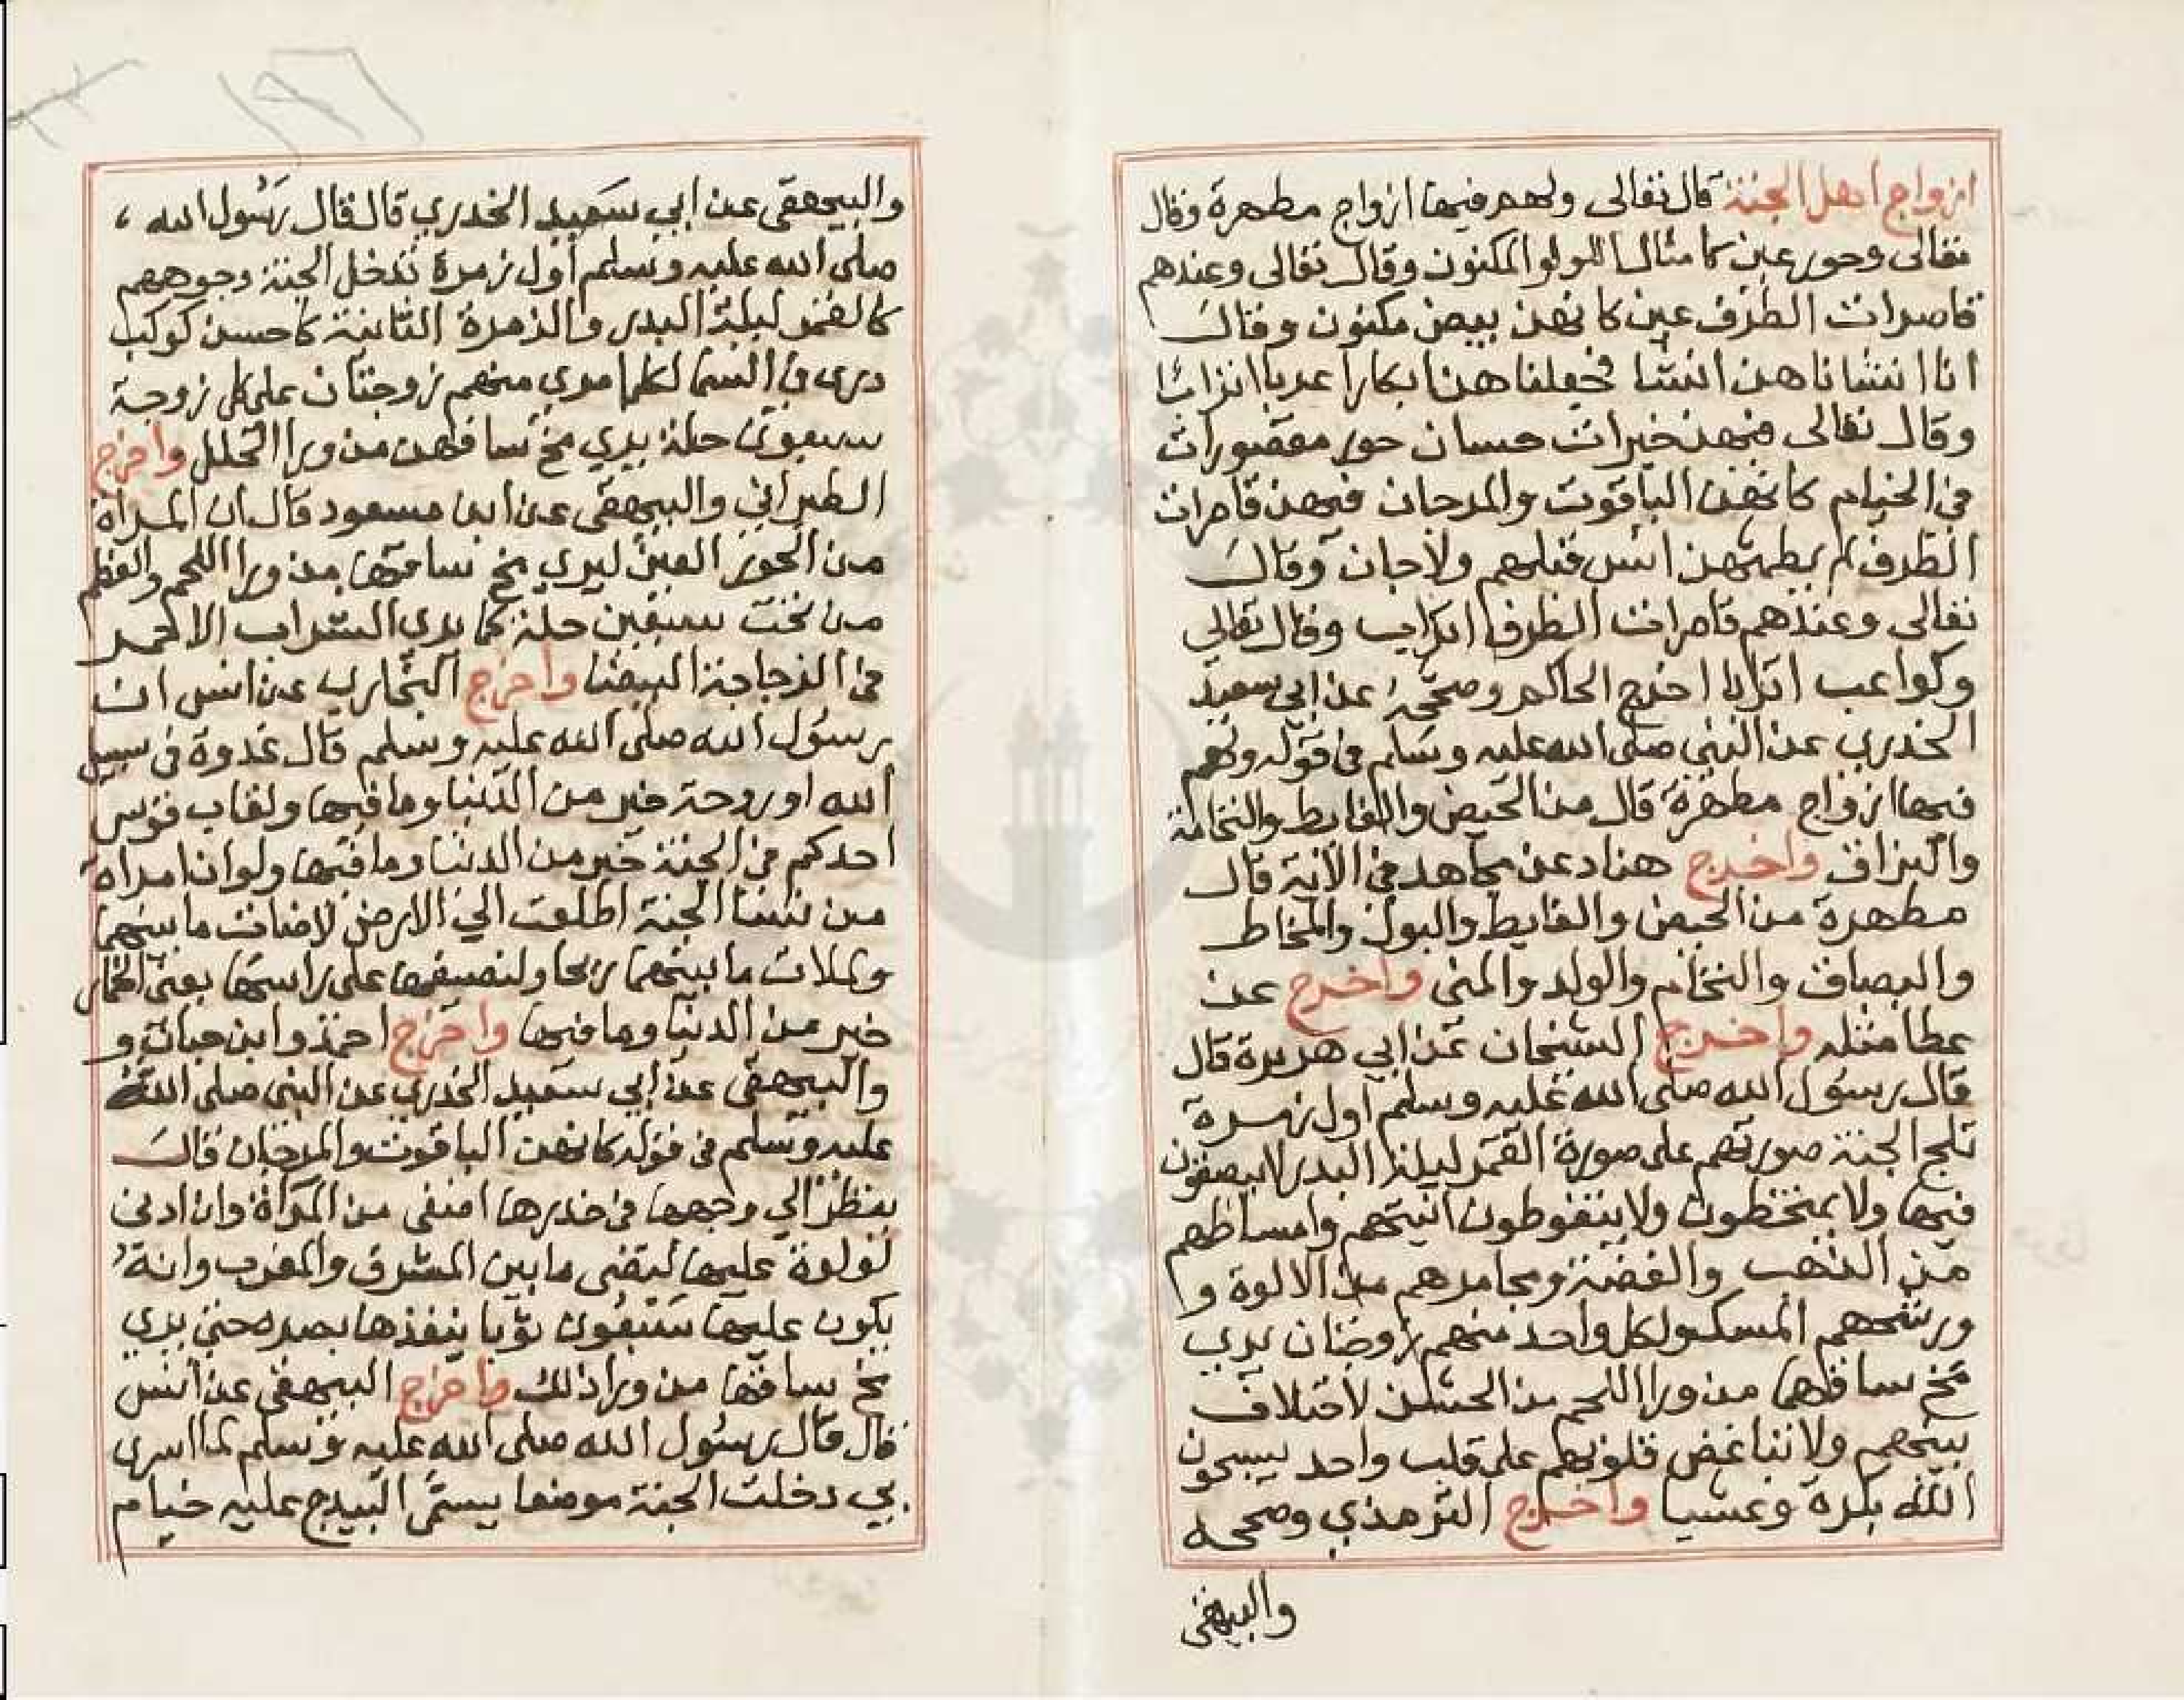 ازواج اهل الجنة قال تعالى ولهم فيها ازواج مطهرة وقال
تعالى وحور عين كامثال اللولو المكنون وقال تعالى وعندهم
قاصرات الطرف عين كانهن بيض مكنون وقال
انا انشاناهن انشا فجعلناهن ابكارا عربا اترابا
وقال تعالى فيهن خيرات حسان حور مقصورات
في الخيام كانهن الياقوت والمرجان فيهن قاصرات
الطرف لم يطمثهن انس قبلهم ولا جان وقال
تعالى وعندهم قاصرات الطرف اتراب وقال تعالي
وكواعب اترابا اخرج الحاكم وصححه عن ابي سعيد
الخدري عن النبي صلى الله عليه وسلم في قوله ولهم
فيها ازواج مطهرة قال من الحيض والغايط والنخامة
والبزاق واخرج هناد عن مجاهد في الاية قال
مطهرة من الحيض والغايط والبول والمخاط
والبصاق والنخام والولد والمني واخرج عن
عطا مثله واخرج الشيخان عن ابي هريرة قال
قال رسول الله صلى الله عليه وسلم اول زمرة
تلج الجنة صورتهم على صورة القمر ليلة البدر لا يبصقون
فيها ولا يمتخطون ولا يتغوطون انيتهم وامساطهم
من الذهب والفضة ومجامرهم من الالوة و
ورشحهم المسك ولكل واحد منهم زوجتان يري
مخ ساقهما من ورا اللحم من الحسن لا اختلاف
بينهم ولا تباغض قلوبهم على قلب واحد يسبحون
الله بكرة وعشيا واخرج الترمذي وصححه
والبيهقي
والبيهقي عن ابي سعيد الخدري قال قال رسول الله
صلى الله عليه وسلم أول زمرة تدخل الجنة وجوههم
كالقمر ليلة البدر والزمرة الثانية كاحسن كوكب
دري في السما لكل امري منهم زوجتان على كل زوجة
سبعون حلة يري مخ ساقهن من ورا الحلل واخرج
الطبراني والبيهقي عن ابن مسعود قال ان المراة
من الحور العين ليري مخ ساقها من ورا اللحم والعظم
من تحت سبعين حلة كما يري الشراب الاحمر
في الزجاجة البيضا واخرج البخاري عن انس ان
رسول الله صلى الله عليه وسلم قال غدوة في سبيل
الله او روحة خير من الدنيا وما فيها ولقاب قوس
احدكم في الجنة خير من الدنيا وما فيها ولو ان امراة
من نسا الجنة اطلعت الي الارض لاضات ما بينهما
وملات ما بينهما ريحا ولنصيفها على راسها يعني الخمار
خير من الدنيا وما فيها واخرج احمد وابن حبان و
والبيهقي عن ابي سعيد الخدري عن النبي صلى الله
عليه وسلم في قوله كانهن الياقوت والمرجان قال
ينظر الي وجهها في خدرها اصفى من المراة وان ادنى
لولوة عليها لتضى ما بين المشرق والمغرب وانه
يكون عليها سبعون ثوبا ينفذها بصره حتي يري
مخ ساقها من ورا ذلك واخرج البيهقي عن انس
قال قال رسول الله صلى الله عليه وسلم لما اسرى
بي دخلت الجنة موضعا يسمى البيدج عليه خيام